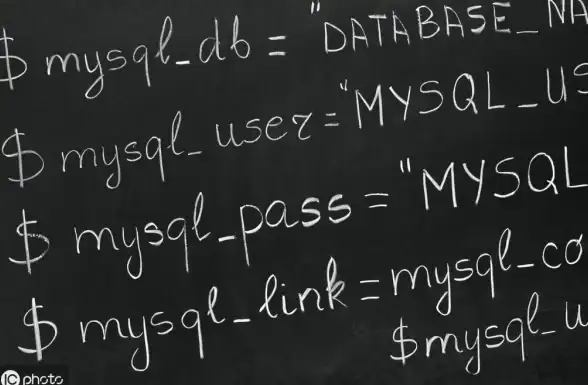 $ mysql_db = "DATABASE_NA
$ mysql_user="MYSQL_US
$ mysql_pass = "MYSQL
$ mysql_link=mysql_co
$mysql_u
IC photo